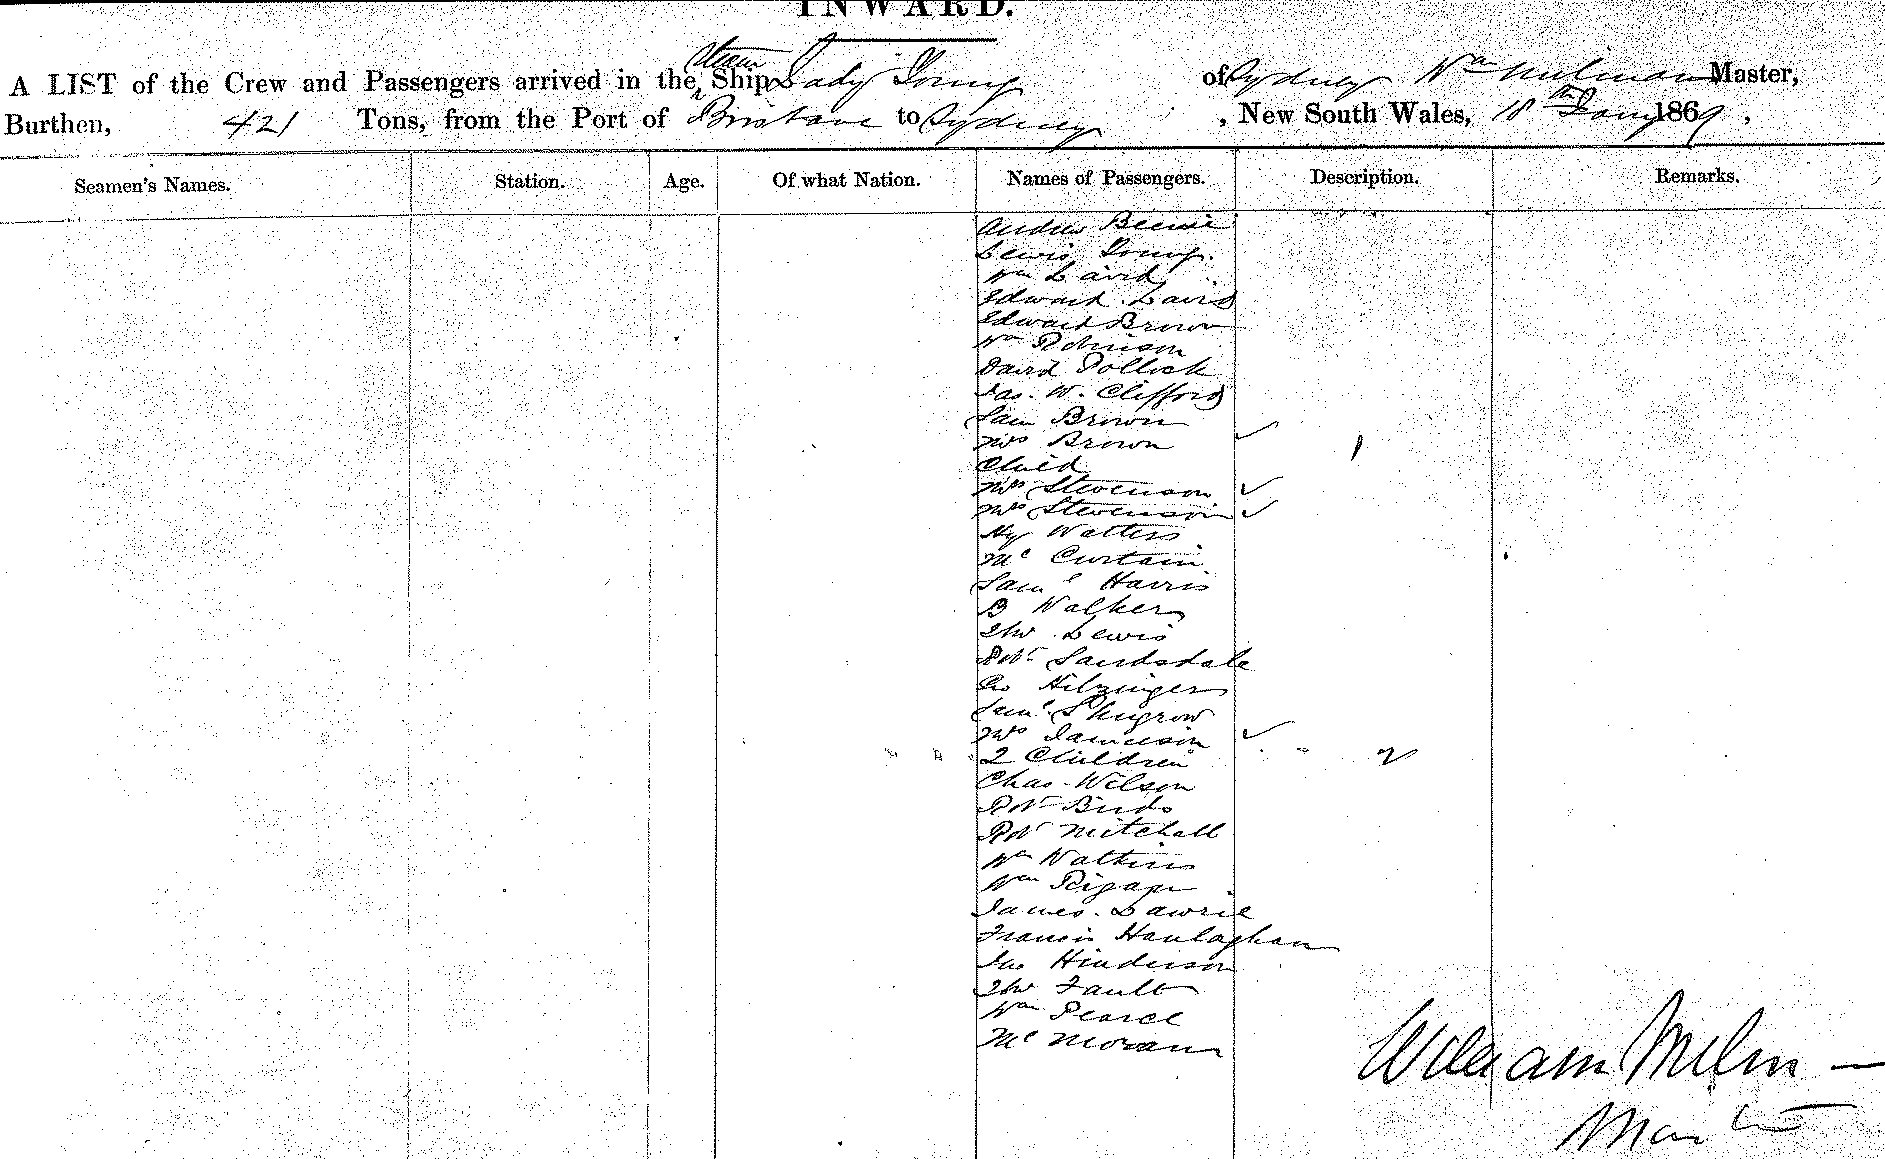 INWARD.
A LIST of the Crew and Passengers arrived in the Steam Ship Lady Young of Sydney Wm Milman Master,
Burthen, 421 Tons, from the Port of Brisbane to Sydney, New South Wales, 18th Jany 1869,
Seamen's Names. Station. Age. Of what Nation. Names of Passengers. Description. Remarks.
Andrew
Lewis Young
Wm Laird
Edward Laird
Edward Brown
Wm Robinson
David Pollock
Jas. W. Clifford
Sam Brown
Mrs Brown
Child 1
Mrs Stevenson
Mrs Stevenson
Hy Watters
Mc Curtain
Saml Harris
B Walker
Thos Lewis
Robt Sandsdale
Geo Hilzinger
Saml
Mrs Jamieson
2 Children 2
Chas Wilson
Robt Birds
Robt Mitchell
Wm Watkins
Wm
James Lawrie
Francis Hanlaghan
Jas Hinderson
Thos Fault
Wm Pearce
Mc Moran
William Milman
Master